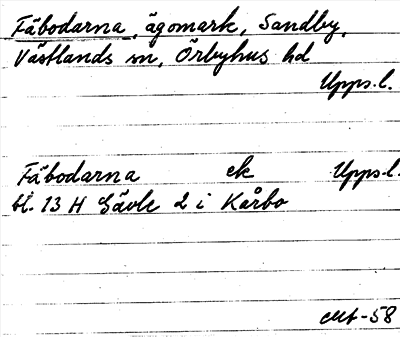 Fäbodarna, ägomark, Sandby,
Västlands sn, Örbyhus hd
Upps.l.
Fäbodarna ek Upps.l.
bl. 13 H Gävle 2 i Kårbo
-58